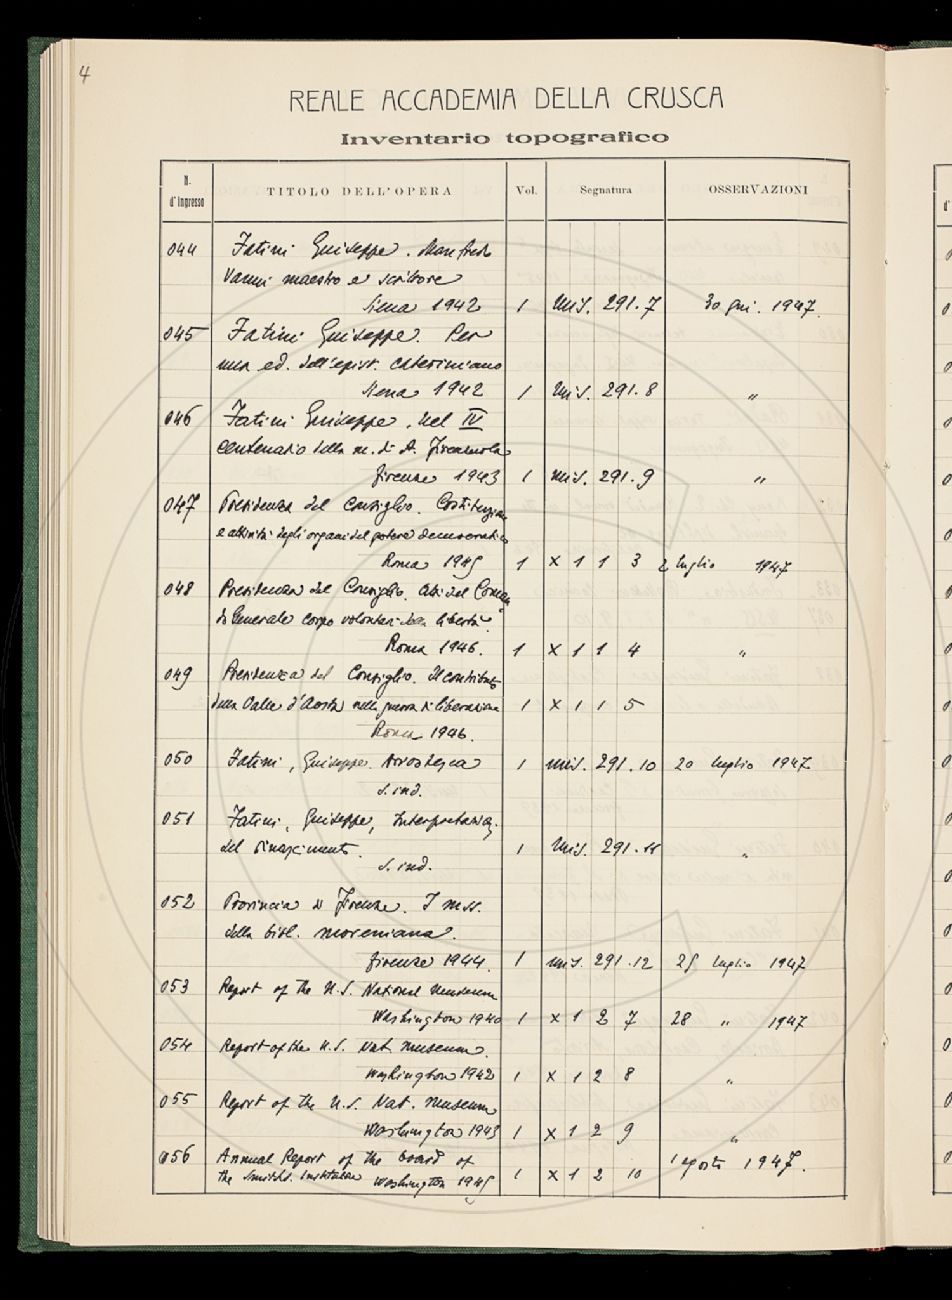 4
REALE ACCADEMIA DELLA CRUSCA
Inventario topografico
N. d'Ingresso TITOLO DELL'OPERA Vol. Segnatura OSSERVAZIONI
044 Fatini Giuseppe. Manfredo
Vanni maestro e scrittore
Siena 1942 1 Mis. 291.7 30 giu. 1947.
045 Fatini Giuseppe. Per
una ed. dell'epist. cateriniano
Siena 1942 1 Mis. 291.8 "
046 Fatini Giuseppe. Nel IV
centenario della m. di A. Firenzuola
Firenze 1943 1 Mis. 291.9 "
047 Presidenza del Consiglio. Costituzione
e attività degli organi del potere democratico
Roma 1945 1 X 1 1 3 2 luglio 1947
048 Presidenza del Consiglio. Atti del Coman
do Generale corpo volontari della libertà
Roma 1946. 1 X 1 1 4 "
049 Presidenza del Consiglio. Il contributo
della Valle d'Aosta nella guerra di liberazione 1 X 1 1 5
Roma 1946.
050 Fatini, Giuseppe. Ariostesca 1 Mis. 291.10 20 luglio 1947
s. ind.
051 Fatini, Giuseppe, Interpretaz.
del rinascimento. 1 Mis. 291.11 "
s. ind.
052 Provincia di Firenze. I mss.
della bibl. moreniana.
Firenze 1944. 1 Mis. 291.12 25 luglio 1947
053 Report of the U.S. National Museum
Washington 1940 1 X 1 2 7 28 " 1947
054 Report of the U.S. Nat. Museum.
Washington 1942 1 X 1 2 8 "
055 Report of the U.S. Nat. Museum
Washington 1943 1 X 1 2 9 "
056 Annual Report of the board of 1 agosto 1947.
the Smiths. Institution Washington 1945 1 X 1 2 10